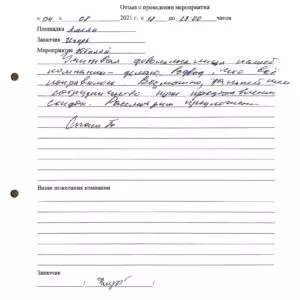 Отзыв о проведении мероприятия
с 04 08 2021 г с 18 до 23.00 часов
Площадка
Заказчик Игорь
Мероприятие Юбилей
Учитывая довольные лица нашей
компании - делаю вывод, что всё
понравилось. Возможно, дальнейшее
сотрудничество при предоставлении
скидок. Рассмотрим предложения.
Спасибо
Ваши пожелания компании
Заказчик